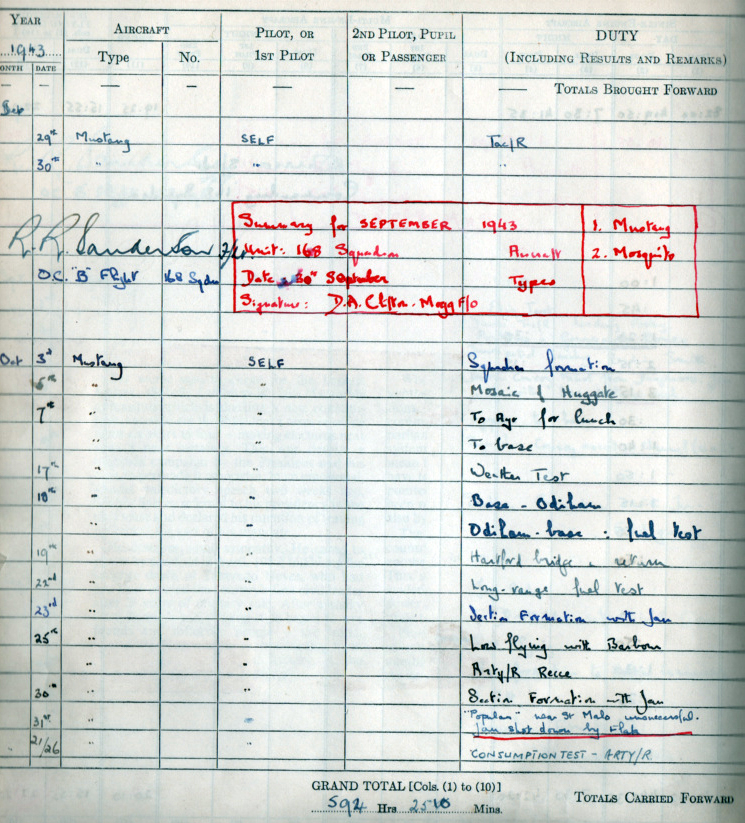 YEAR AIRCRAFT PILOT, OR 2ND PILOT, PUPIL DUTY
1943 Type No. 1ST PILOT OR PASSENGER (INCLUDING RESULTS AND REMARKS)
ONTH DATE
— — — — — — — TOTALS BROUGHT FORWARD
Sep
29th Mustang SELF Tac/R
30th " " "
Summary for SEPTEMBER 1943 1. Mustang
R. R. Sanderson F/Lt. Unit: 168 Squadron Aircraft 2. Mosquito
O.C. "B" Flight 168 Sqdn Date 30th September Types
Signature: D.A. Clifton-Mogg F/O
Oct 3rd Mustang SELF Squadron formation
" " Mosaic of Huggate
7th " " To Ayr for lunch
" " To base
17th " " Weather Test
18th " " Base - Odiham
" " Odiham-base : fuel test
19th " " Hartford bridge & return
22nd " " Long-range fuel test
23rd " " Section Formation with Jan
25th " " Low flying with Barbour
" " Arty/R Recce
30th " " Section Formation with Jan
31st " " "Popular" near St Malo unsuccessful.
Jan shot down by Flak
21/26 " " CONSUMPTION TEST - ARTY/R
GRAND TOTAL [Cols. (1) to (10)]
592 Hrs Mins. TOTALS CARRIED FORWARD